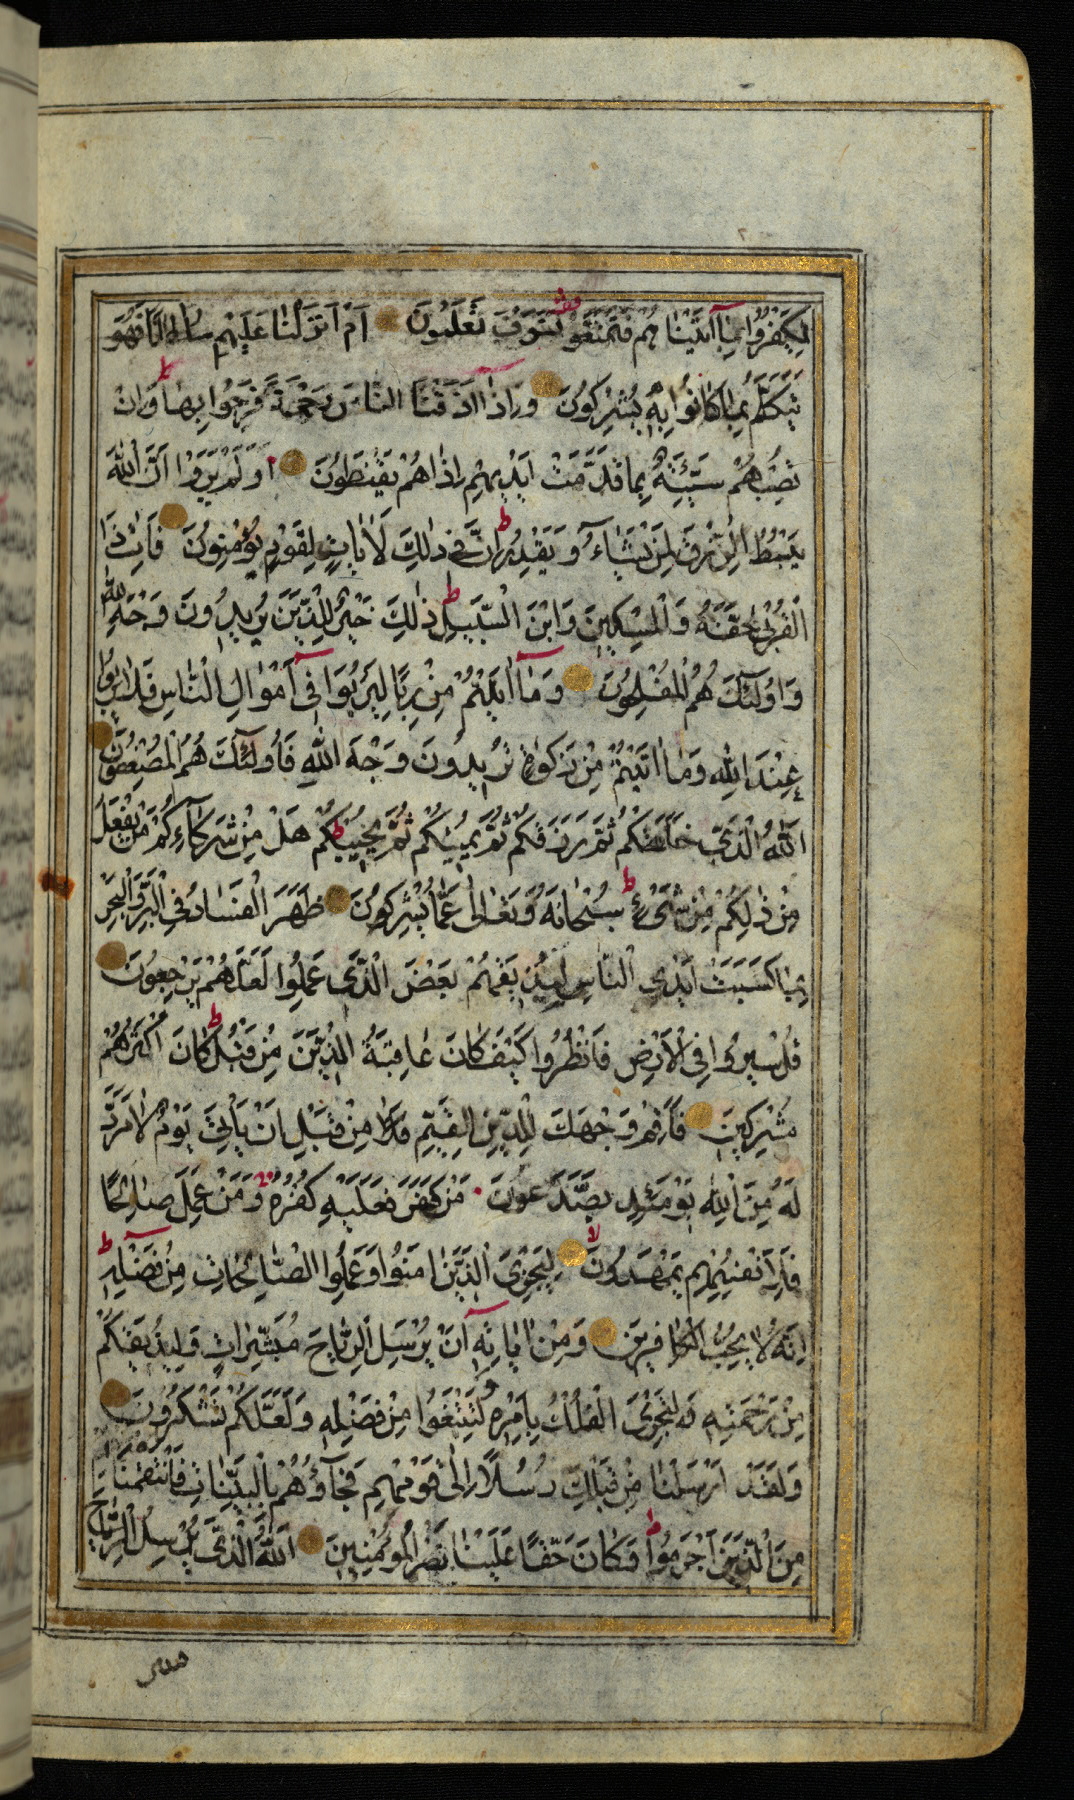 لِيَكْفُرُوا بِمَا آتَيْنَاهُمْ فَتَمَتَّعُوا فَسَوْفَ تَعْلَمُونَ اَمْ اَنْزَلْنَا عَلَيْهِمْ سُلْطَانًا فَهُوَ
يَتَكَلَّمُ بِمَا كَانُوا بِهِ يُشْرِكُونَ وَاِذَا اَذَقْنَا النَّاسَ رَحْمَةً فَرِحُوا بِهَا وَاِنْ
تُصِبْهُمْ سَيِّئَةٌ بِمَا قَدَّمَتْ اَيْدِيهِمْ اِذَا هُمْ يَقْنَطُونَ اَوَلَمْ يَرَوْا اَنَّ اللّٰهَ
يَبْسُطُ الرِّزْقَ لِمَنْ يَشَاءُ وَيَقْدِرُ اِنَّ فِي ذٰلِكَ لَاٰيَاتٍ لِقَوْمٍ يُؤْمِنُونَ فَاٰتِ ذَا
الْقُرْبٰى حَقَّهُ وَالْمِسْكِينَ وَابْنَ السَّبِيلِ ذٰلِكَ خَيْرٌ لِلَّذِينَ يُرِيدُونَ وَجْهَ اللّٰهِ
وَاُولٰئِكَ هُمُ الْمُفْلِحُونَ وَمَا اٰتَيْتُمْ مِنْ رِبًا لِيَرْبُوَا فِي اَمْوَالِ النَّاسِ فَلَا يَرْبُوا
عِنْدَ اللّٰهِ وَمَا اٰتَيْتُمْ مِنْ زَكٰوةٍ تُرِيدُونَ وَجْهَ اللّٰهِ فَاُولٰئِكَ هُمُ الْمُضْعِفُونَ
اَللّٰهُ الَّذِي خَلَقَكُمْ ثُمَّ رَزَقَكُمْ ثُمَّ يُمِيتُكُمْ ثُمَّ يُحْيِيكُمْ هَلْ مِنْ شُرَكَائِكُمْ مَنْ يَفْعَلُ
مِنْ ذٰلِكُمْ مِنْ شَيْءٍ سُبْحَانَهُ وَتَعَالٰى عَمَّا يُشْرِكُونَ ظَهَرَ الْفَسَادُ فِي الْبَرِّ وَالْبَحْرِ
بِمَا كَسَبَتْ اَيْدِي النَّاسِ لِيُذِيقَهُمْ بَعْضَ الَّذِي عَمِلُوا لَعَلَّهُمْ يَرْجِعُونَ
قُلْ سِيرُوا فِي الْاَرْضِ فَانْظُرُوا كَيْفَ كَانَ عَاقِبَةُ الَّذِينَ مِنْ قَبْلُ كَانَ اَكْثَرُهُمْ
مُشْرِكِينَ فَاَقِمْ وَجْهَكَ لِلدِّينِ الْقَيِّمِ مِنْ قَبْلِ اَنْ يَأْتِيَ يَوْمٌ لَا مَرَدَّ
لَهُ مِنَ اللّٰهِ يَوْمَئِذٍ يَصَّدَّعُونَ مَنْ كَفَرَ فَعَلَيْهِ كُفْرُهُ وَمَنْ عَمِلَ صَالِحًا
فَلِاَنْفُسِهِمْ يَمْهَدُونَ لِيَجْزِيَ الَّذِينَ اٰمَنُوا وَعَمِلُوا الصَّالِحَاتِ مِنْ فَضْلِهِ
اِنَّهُ لَا يُحِبُّ الْكَافِرِينَ وَمِنْ اٰيَاتِهِ اَنْ يُرْسِلَ الرِّيَاحَ مُبَشِّرَاتٍ وَلِيُذِيقَكُمْ
مِنْ رَحْمَتِهِ وَلِتَجْرِيَ الْفُلْكُ بِاَمْرِهِ وَلِتَبْتَغُوا مِنْ فَضْلِهِ وَلَعَلَّكُمْ تَشْكُرُونَ
وَلَقَدْ اَرْسَلْنَا مِنْ قَبْلِكَ رُسُلًا اِلٰى قَوْمِهِمْ فَجَاؤُهُمْ بِالْبَيِّنَاتِ فَانْتَقَمْنَا
مِنَ الَّذِينَ اَجْرَمُوا وَكَانَ حَقًّا عَلَيْنَا نَصْرُ الْمُؤْمِنِينَ اَللّٰهُ الَّذِي يُرْسِلُ الرِّيَاحَ